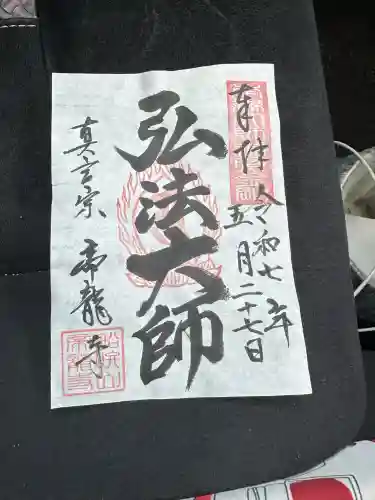 奉拝
令和七年
五月二十七日
弘法大師
真言宗
帝龍寺